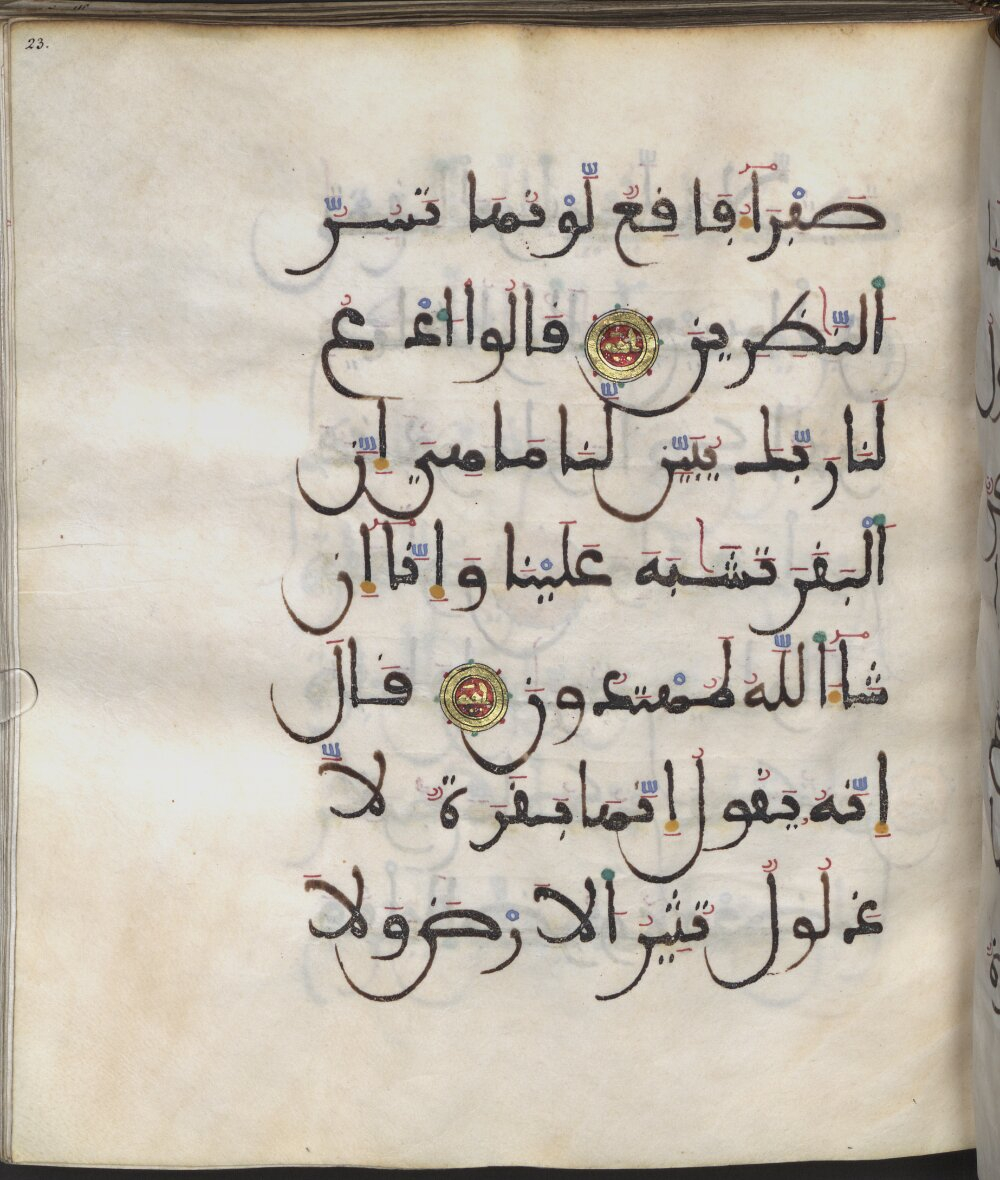 23.
صَفْرَآءُ فَاقِعٌ لَّوْنُهَا تَسُرُّ
اَ۬لنَّٰظِرِينَ قَالُواْ اُ۟دْعُ
لَنَا رَبَّكَ يُبَيِّن لَّنَا مَا هِيَ إِنَّ
اَ۬لْبَقَرَ تَشَٰبَهَ عَلَيْنَا وَإِنَّآ إِن
شَآءَ اَ۬للَّهُ لَمُهْتَدُونَ قَالَ
إِنَّهُ يَقُولُ إِنَّهَا بَقَرَةٌ لَّا
ذَلُولٌ تُثِيرُ اُ۬لَارْضَ وَلَا